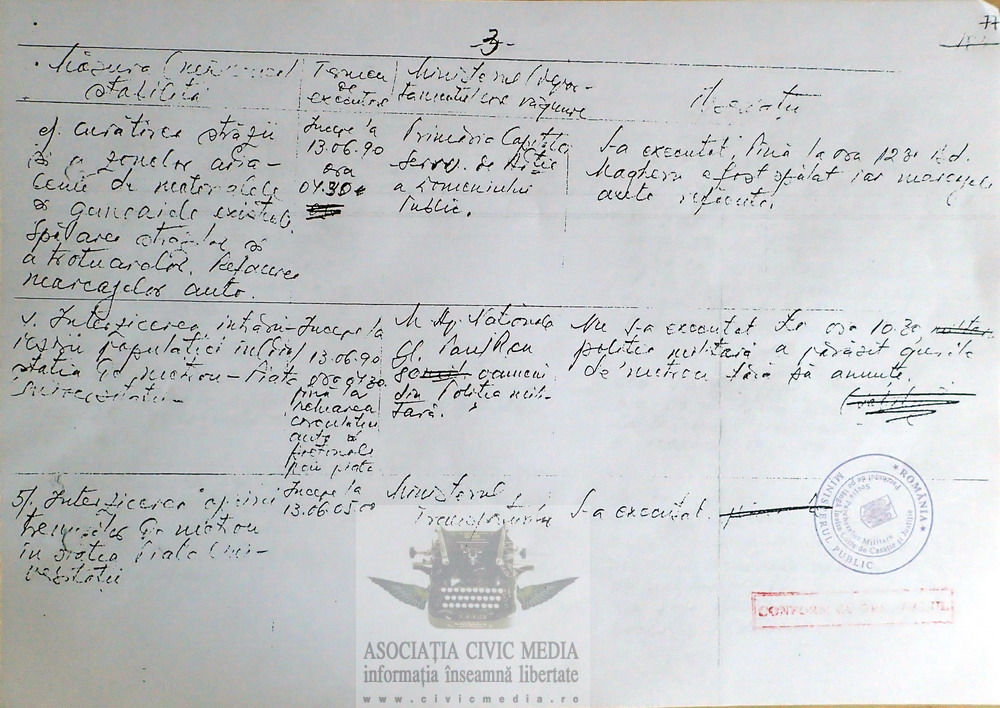 -3-
77
Măsura
stabilită
Termen
de
executare
Ministerul
e). curățirea străzii
și a zonelor adia-
cente de materialele
și gunoaiele existente.
Spălarea străzilor și
a trotuarelor. Refacerea
marcajelor auto.
Începe la
13.06.90
ora
04.30
Primăria Capitalei
Serv. de
a Domeniului
Public.
S-a executat. Până la ora 12 30 B-d.
Magheru a fost spălat iar marcajele
auto refăcute.
Interzicerea
populației în
stația de metrou - Piața
Universitatii
Începe la
13.06.90
ora 04.30
până la
reluarea
circulației
auto și
pietonale
prin piață
M. Ap. Naționale
Gl.
oameni
din Poliția mili-
tară.
Nu s-a executat. La ora 10.30
poliția militară a părăsit gurile
de metrou fără să anunțe.
5). Interzicerea opririi
trenurilor de metrou
în stația Piața Uni-
versității
Începe la
13.06 05 00
Ministerul
Transporturilor
S-a executat.
ROMÂNIA
MINISTERUL PUBLIC
Parchetul de pe lângă Înalta Curte de Casație și Justiție
Secția Parchetelor Militare
CONFORM CU ORIGINALUL
ASOCIAȚIA CIVIC MEDIA
informația înseamnă libertate
www.civicmedia.ro